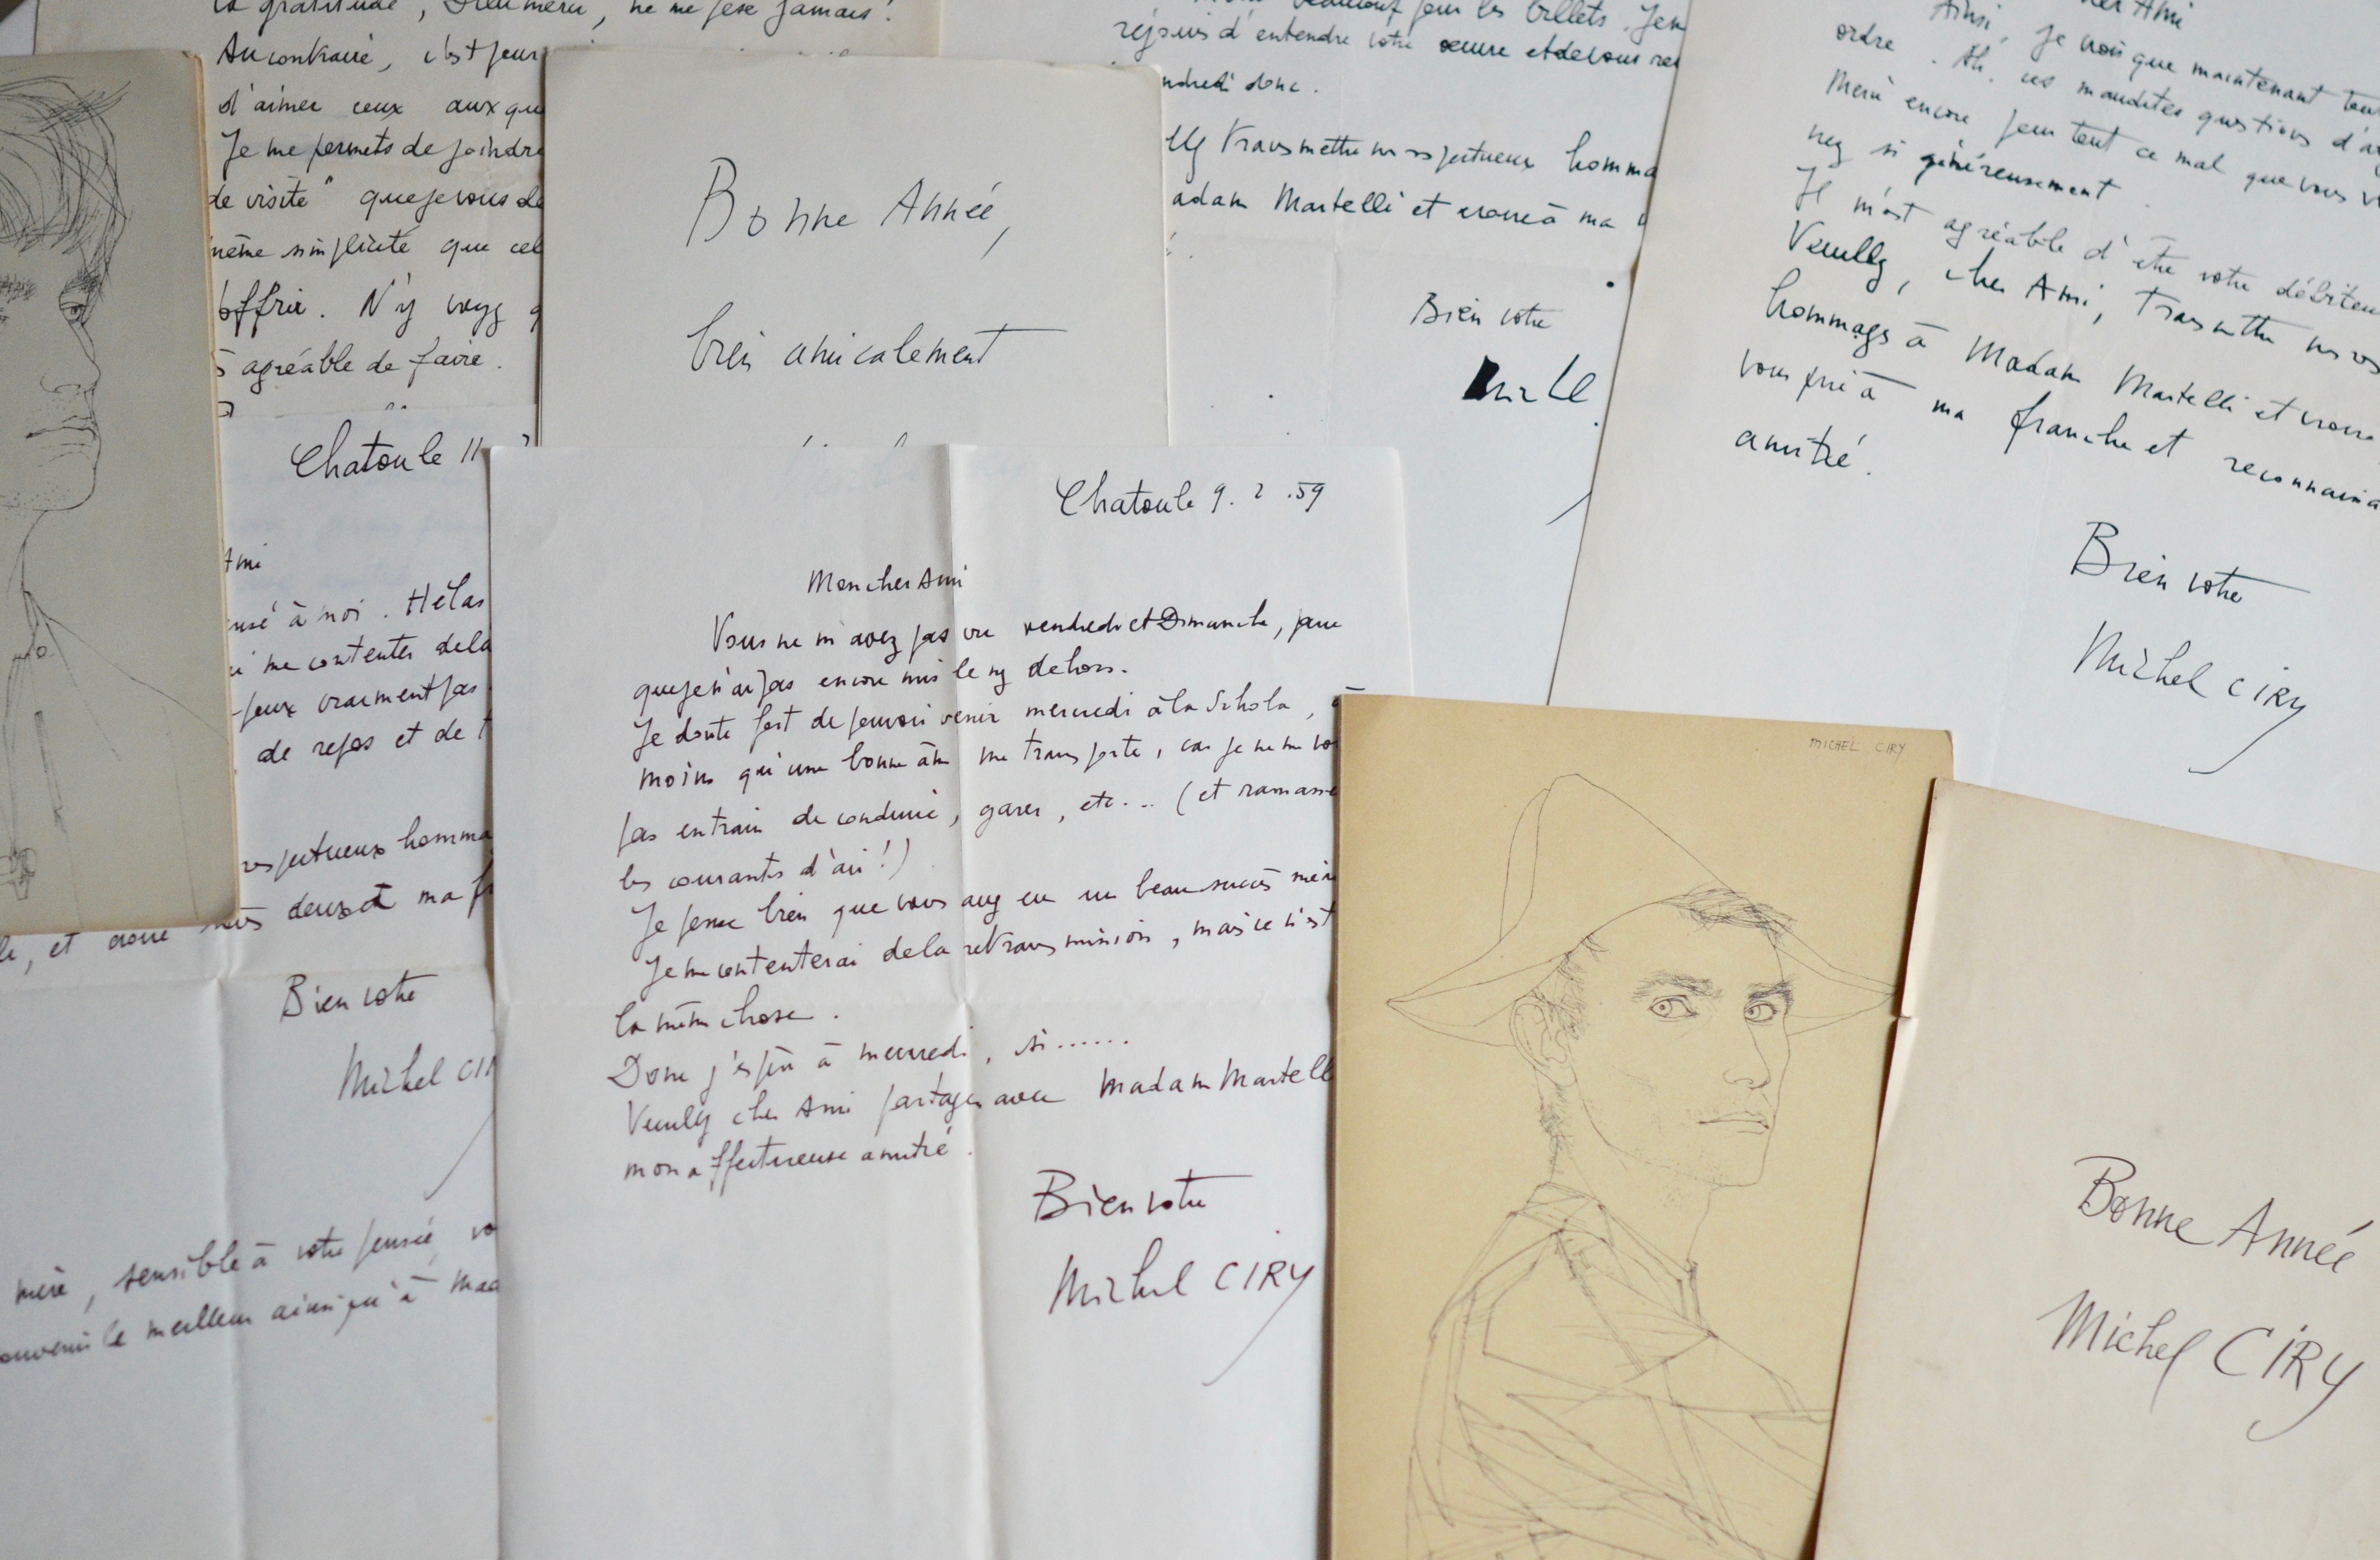 la gratitude, Dieu merci, ne me pèse jamais!
Au contraire, c'est pour
d'aimer ceux aux qu
Je me permets de joindre
de visite" que je vous de
même simplicité que cel
offrir. N'y voyez
agréable de faire.
Bonne Année,
bien amicalement
beaucoup pour les billets. Je m
réjouis d'entendre votre oeuvre et de vous re
ndredi donc.
transmettre mes respectueux homma
adame Martelli et croire à ma
Bien votre
her Ami
Ainsi, je crois que maintenant tou
ordre. Ah. ces maudites questions d'a
Merci encore pour tout ce mal que vous v
nez si généreusement.
Il m'est agréable d'être votre débiteu
Veuillez, cher Ami, transmettre mes res
hommages à Madame Martelli et croire
vous prie à ma franche et reconnaissa
amitié.
Bien votre
Michel CIRY
Chatou le 11
Ami
ensé à moi. Hélas
me contenter de la
peux vraiment pas
de repos et de t
respectueux homma
et croire deux et ma f
Bien votre
Michel CIR
mère, sensible à votre pensée, vo
souvenir le meilleur ainsi qu'à Mad
Chatou le 9. 2 .59
Mon cher Ami
Vous ne m'avez pas vu vendredi et Dimanche, parce
que je n'ai pas encore mis le nez dehors.
Je doute fort de pouvoir venir mercredi à la Schola, à
moins qu'une bonne âme me transporte, car je ne me vo
pas en train de conduire, garer, etc... (et ramasse
les courants d'air!)
Je pense bien que vous avez eu un beau succès méri
Je me contenterai de la retransmission, mais ce n'est
la même chose.
Donc j'espère à mercredi, si......
Veuillez cher Ami partager avec Madame Martell
mon affectueuse amitié.
Bien votre
Michel CIRY
MICHEL CIRY
Bonne Année
Michel CIRY